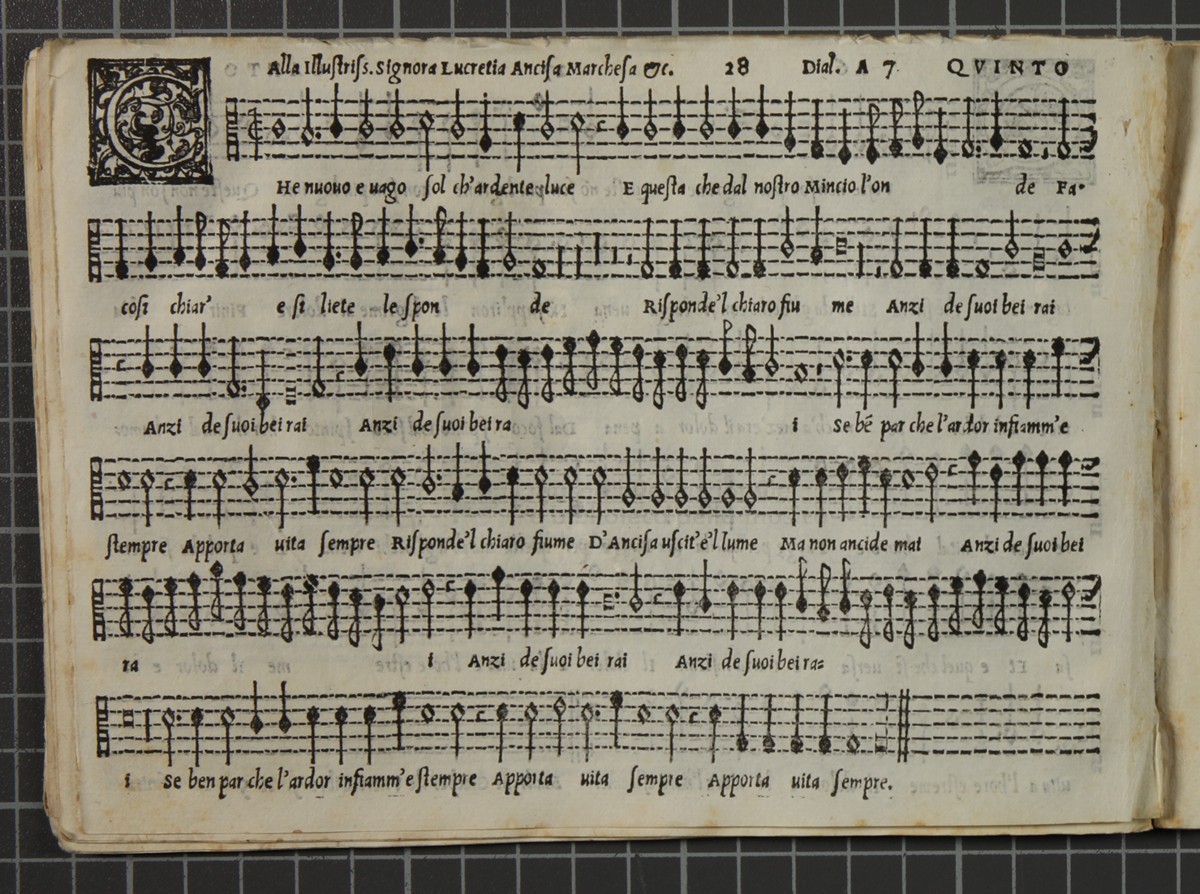 Alla Illustriss. Signora Lucretia Ancisa Marchesa &c. 28 Dial. A 7 QVINTO
C He nuouo e uago sol ch'ardente luce E questa che dal nostro Mincio l'on de Fa-
cosi chiar' e si liete le spon de Risponde'l chiaro fiu me Anzi de suoi bei rai
Anzi de suoi bei rai Anzi de suoi bei ra i Se bẽ par che l'ardor infiamm'e
stempre Apporta uita sempre Risponde'l chiaro fiume D'Ancisa uscit'e'l lume Ma non ancide mai Anzi de suoi bei
ra i Anzi de suoi bei rai Anzi de suoi bei ra=
i Se ben par che l'ardor infiamm'e stempre Apporta uita sempre Apporta uita sempre.